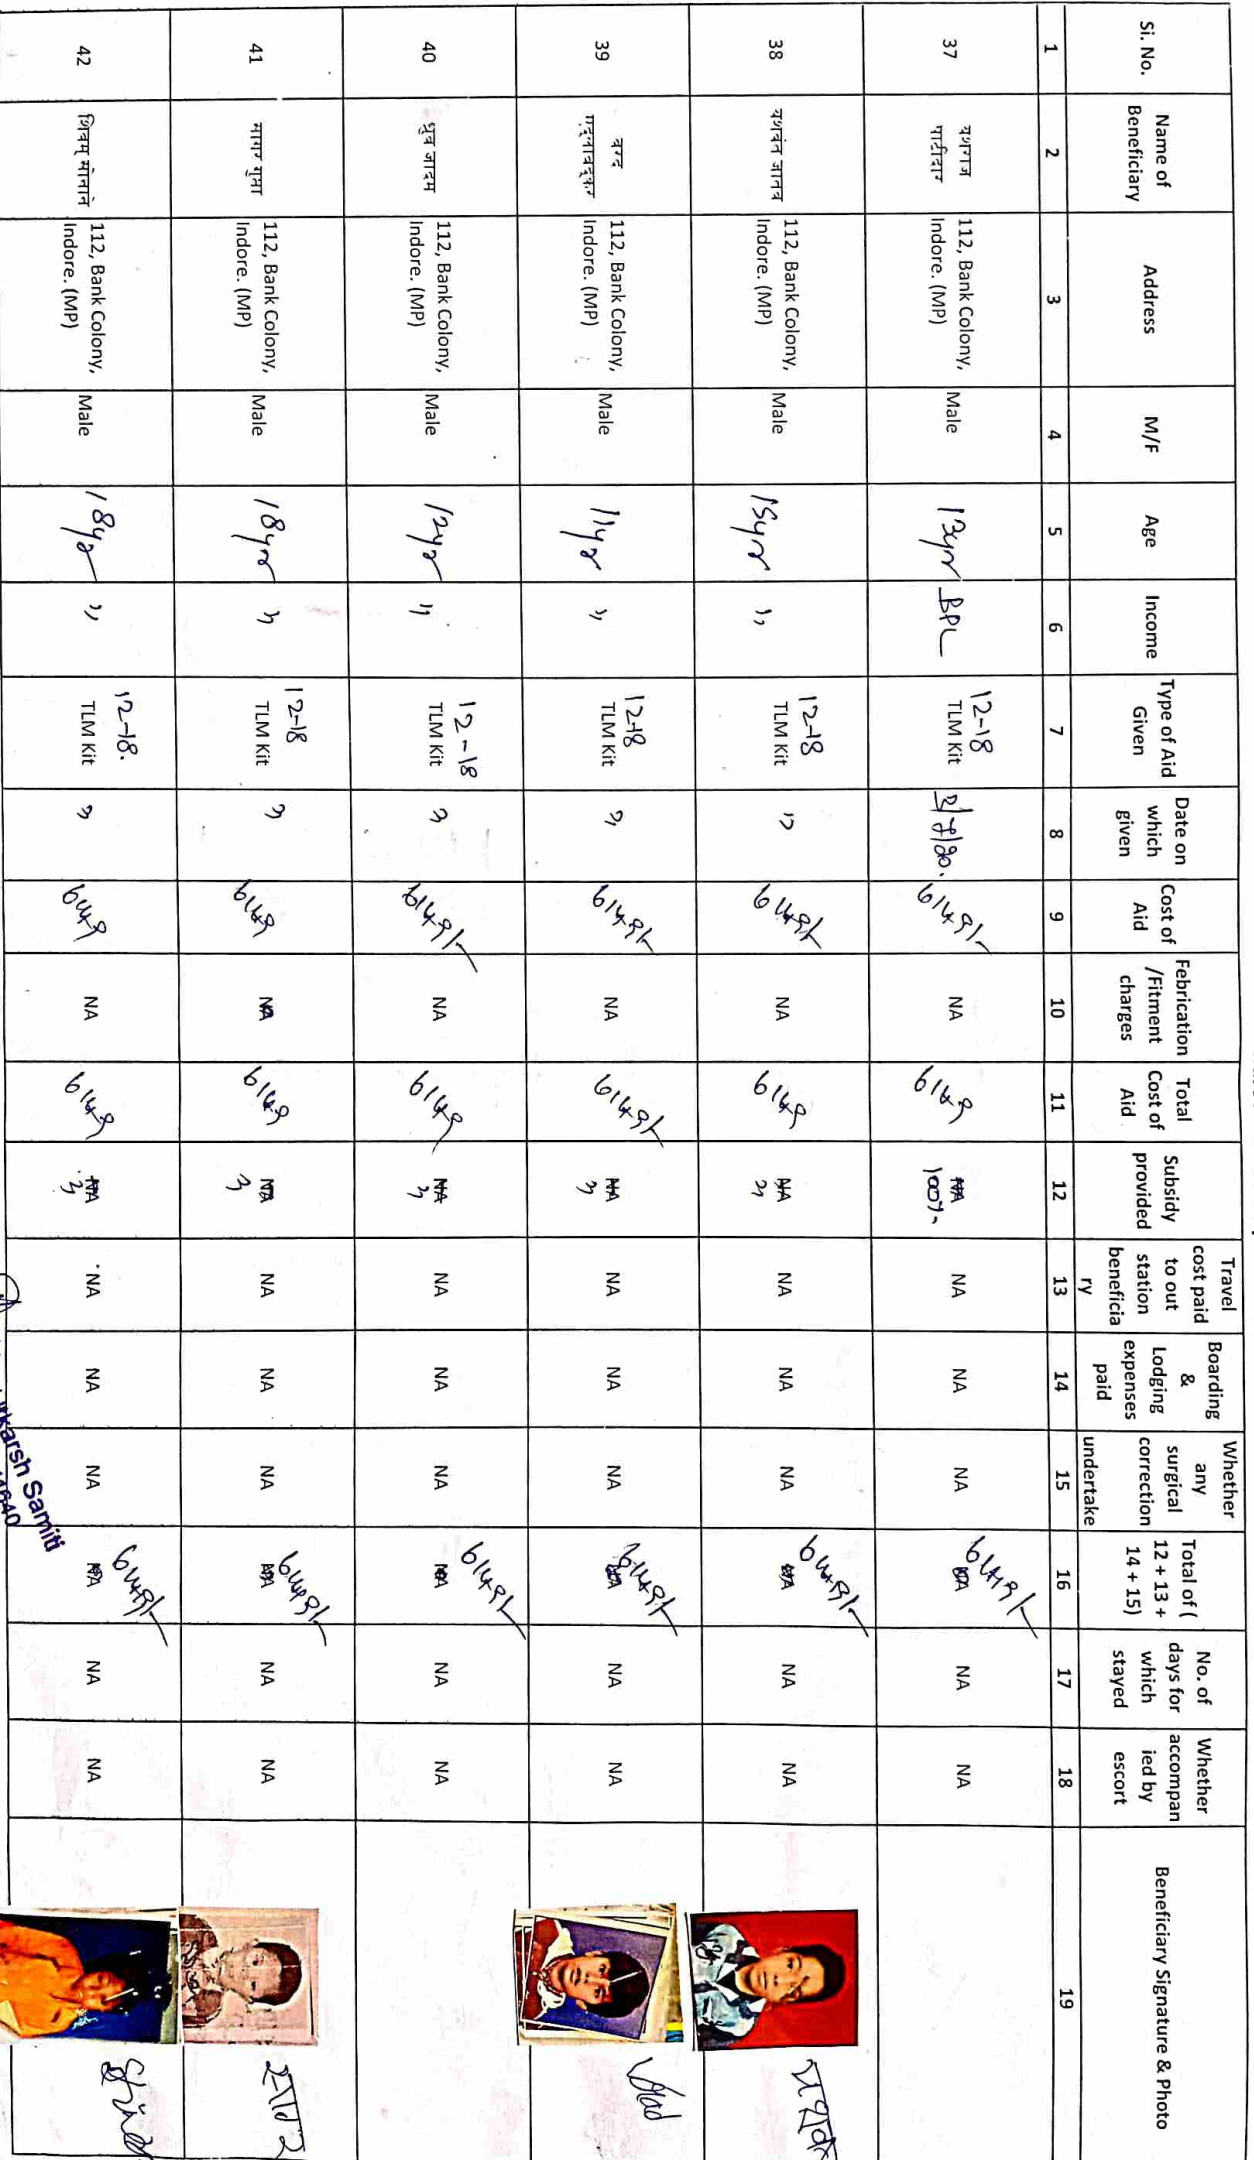 Si. No. | Name of Beneficiary | Address | M/F | Age | Income | Type of Aid Given | Date on which given | Cost of Aid | Febrication /Fitment charges | Total Cost of Aid | Subsidy provided | Travel cost paid to out station beneficia ry | Boarding & Lodging expenses paid | Whether any surgical correction undertake | Total of ( 12 + 13 + 14 + 15) | No. of days for which stayed | Whether accompan ied by escort | Beneficiary Signature & Photo
1 | 2 | 3 | 4 | 5 | 6 | 7 | 8 | 9 | 10 | 11 | 12 | 13 | 14 | 15 | 16 | 17 | 18 | 19
37 | यशराज पाटीदार | 112, Bank Colony, Indore. (MP) | Male | 13yr | BPL | 12-18 TLM Kit | 6149/- | NA | 6149 | NA 100% | NA | NA | NA | 6149/- NA | NA | NA
38 | यशवंत जातव | 112, Bank Colony, Indore. (MP) | Male | 15yr | " | 12-18 TLM Kit | " | 6149/- | NA | 6149 | NA " | NA | NA | NA | 6149/- NA | NA | NA
39 | 112, Bank Colony, Indore. (MP) | Male | 11yr | " | 12-18 TLM Kit | " | 6149/- | NA | 6149/- | NA " | NA | NA | NA | 6149/- NA | NA | NA
40 | ध्रुव जादम | 112, Bank Colony, Indore. (MP) | Male | 12yr | " | 12-18 TLM Kit | " | 6149/- | NA | 6149 | NA " | NA | NA | NA | 6149/- NA | NA | NA
41 | 112, Bank Colony, Indore. (MP) | Male | 18yr | " | 12-18 TLM Kit | " | 6149 | NA | 6149 | NA " | NA | NA | NA | 6149/- NA | NA | NA
42 | 112, Bank Colony, Indore. (MP) | Male | 18yr | " | 12-18. TLM Kit | " | 6149 | NA | 6149 | NA " | NA | NA | NA | 6149/- NA | NA | NA
Samiti